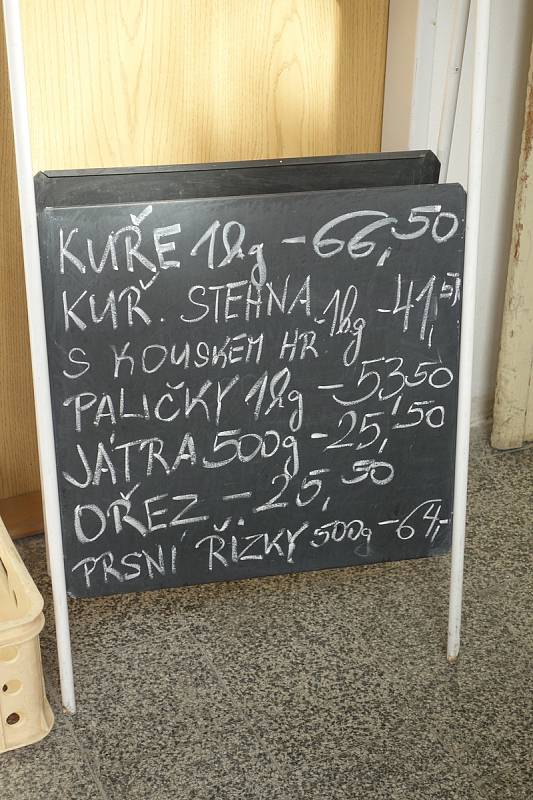 KUŘE 1kg - 66,50
KUŘ. STEHNA 1kg - 41,50
S KOUSKEM HŘ.
PALIČKY 1kg - 53,50
JÁTRA 500g - 25,50
OŘEZ - 25,50
PRSNÍ ŘÍZKY 500g - 64,-